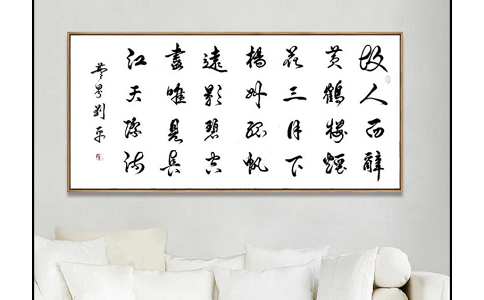 故人西辭
黄鶴楼煙
花三月下
楊州孤帆
遠影碧空
盡唯見長
江天際流